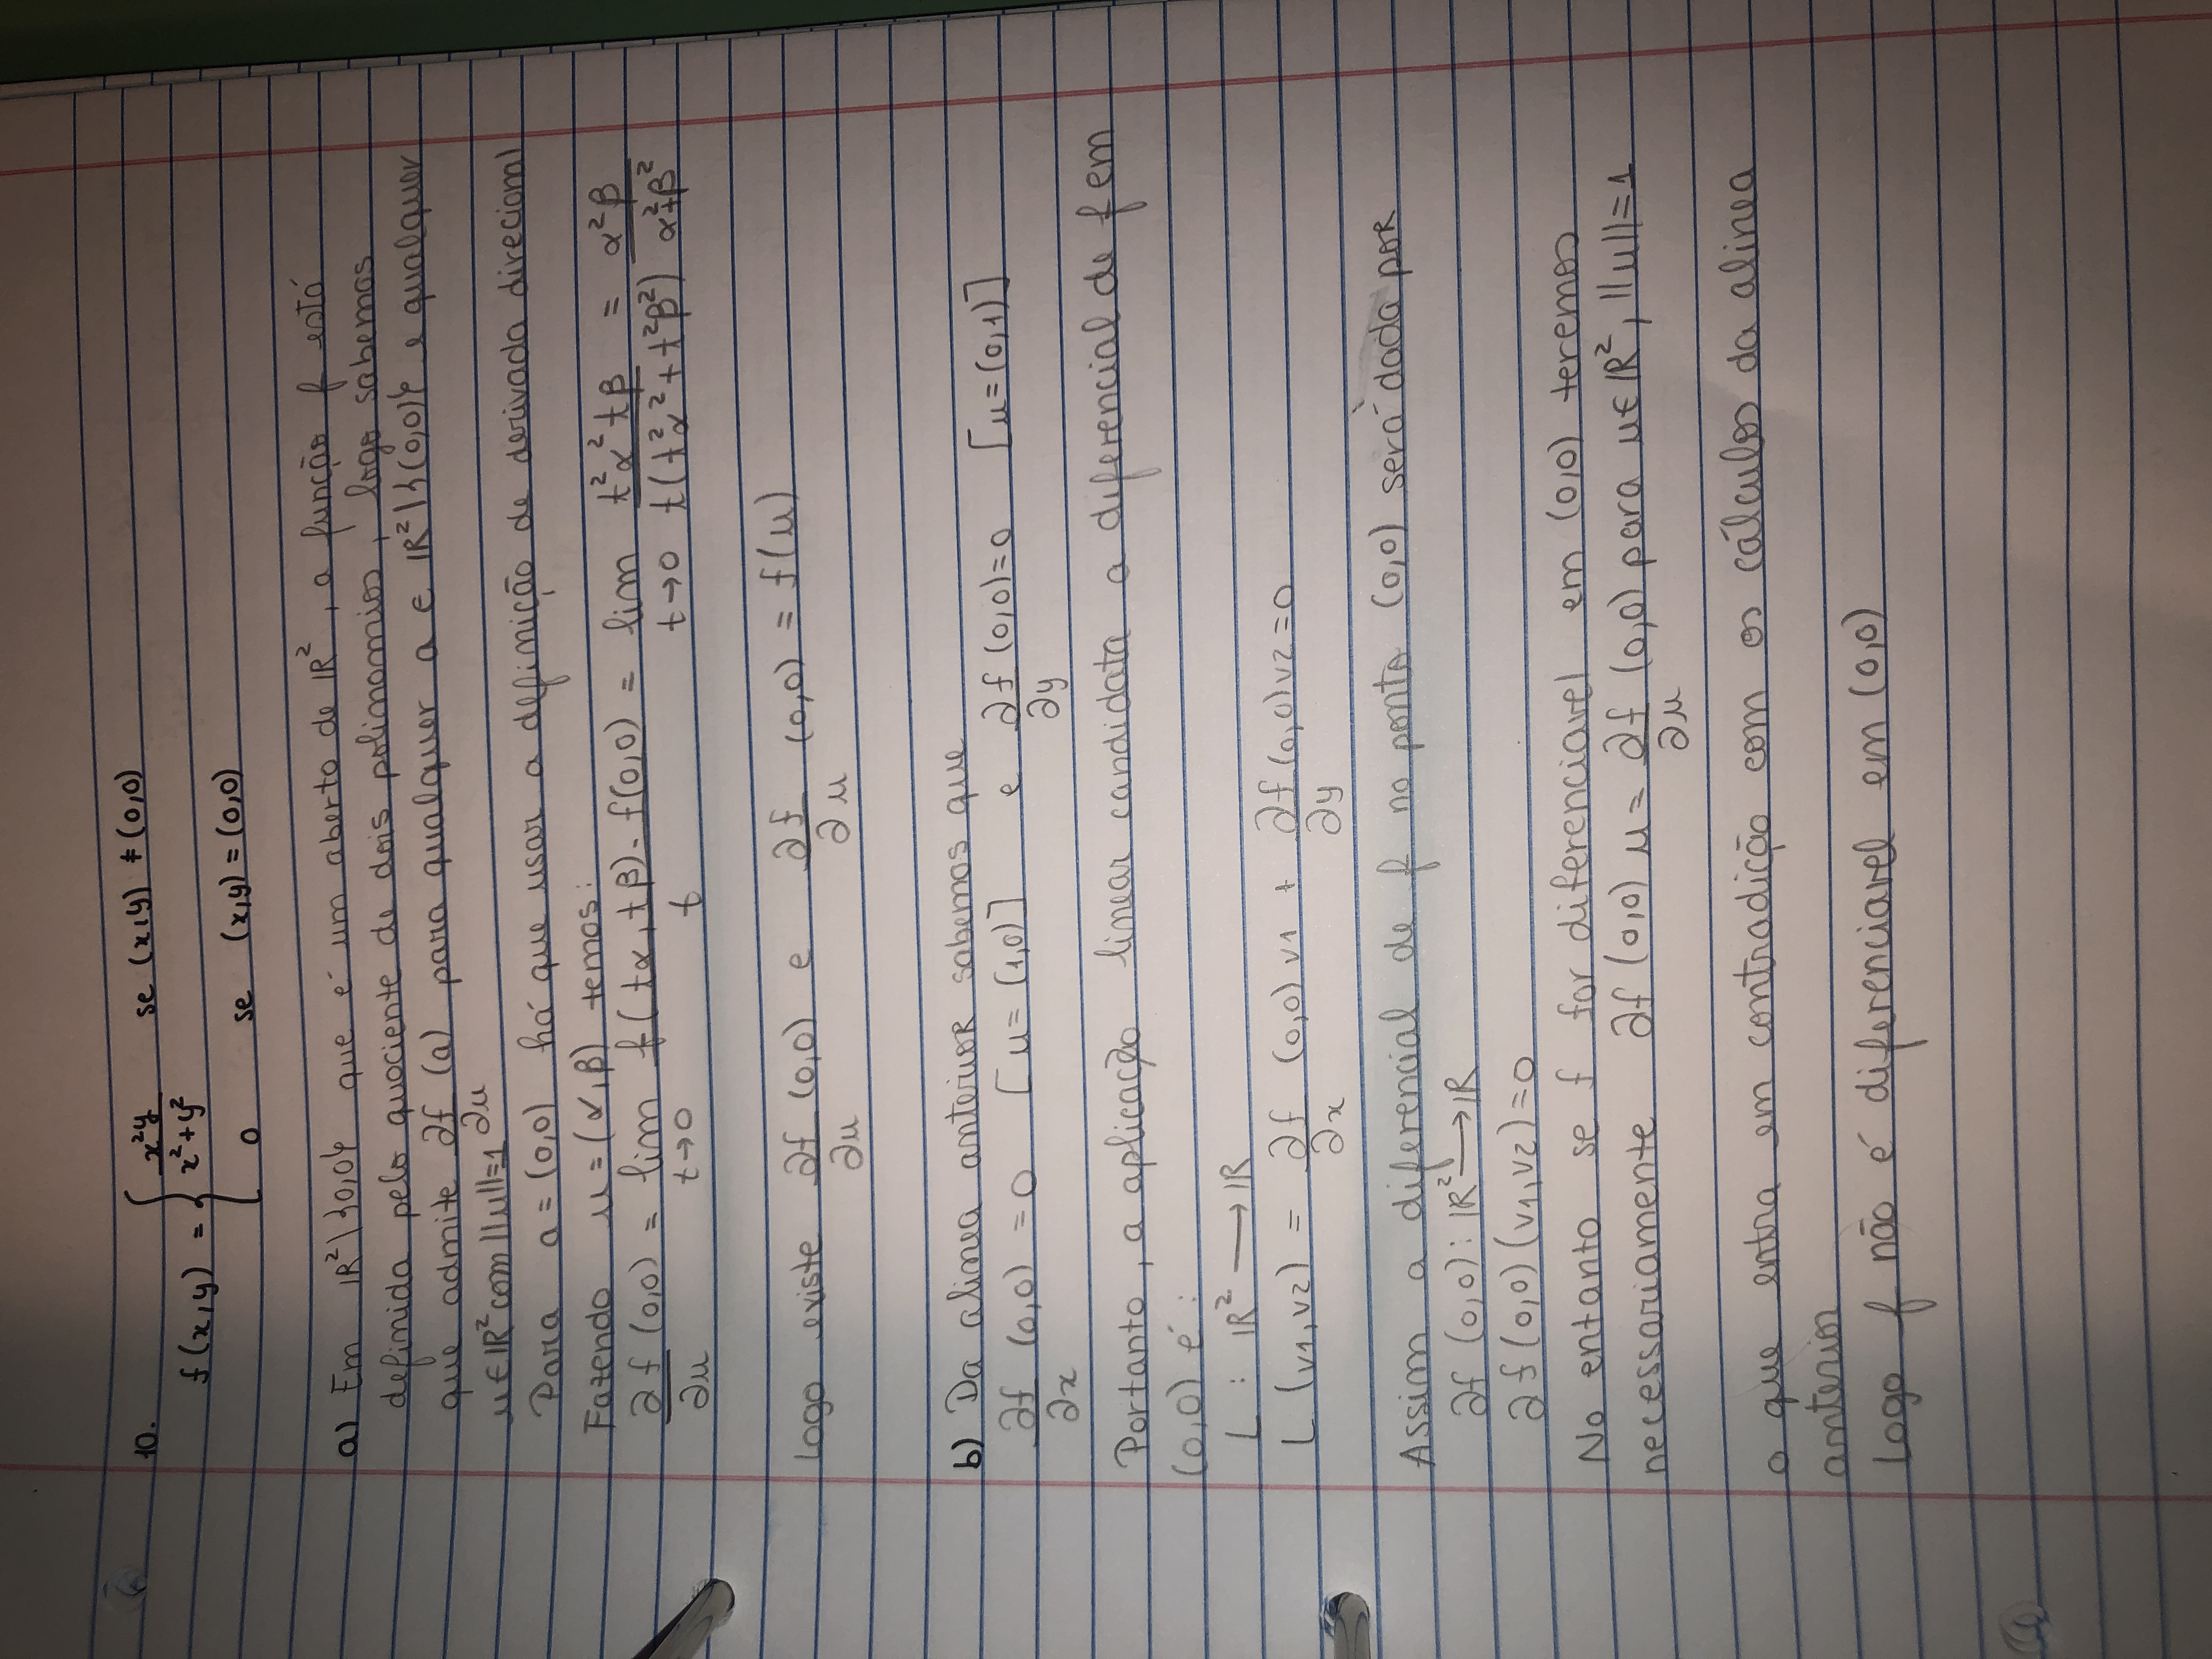 10.
f(x,y) = { x²y / x²+y² se (x,y) ≠ (0,0)
0 se (x,y) = (0,0)
a) Em IR²\{0,0} que é um aberto de IR², a função f está
definida pelo quociente de dois polinomios, logo sabemos
que admite ∂f/∂u (a) para qualquer a ∈ IR²\{(0,0)} e qualquer
u ∈ IR² com ||u||=1
Para a = (0,0) há que usar a definição de derivada direcional
Fazendo u = (α,β) temos:
∂f/∂u (0,0) = lim t→0 f(tα, tβ) - f(0,0) / t = lim t→0 t²α²tβ / t(t²α² + t²β²) = α²β / α²+β²
Logo existe ∂f/∂u (0,0) e ∂f/∂u (0,0) = f(u)
b) Da alinea anterior sabemos que
∂f/∂x (0,0) = 0 [u = (1,0)] e ∂f/∂y (0,0)=0 [u=(0,1)]
Portanto, a aplicação linear candidata a diferencial de f em
(0,0) é:
L : IR² → IR
L (v1,v2) = ∂f/∂x (0,0) v1 + ∂f/∂y (0,0) v2 = 0
Assim a diferencial de f no ponto (0,0) será dada por
∂f (0,0): IR² → IR
∂f (0,0) (v1,v2) = 0
No entanto se f for diferenciavel em (0,0) teremos
necessariamente ∂f (0,0) u = ∂f/∂u (0,0) para u∈IR², ||u||=1
o que entra em contradição com os cálculos da alinea
anterior
Logo f não é diferenciavel em (0,0)